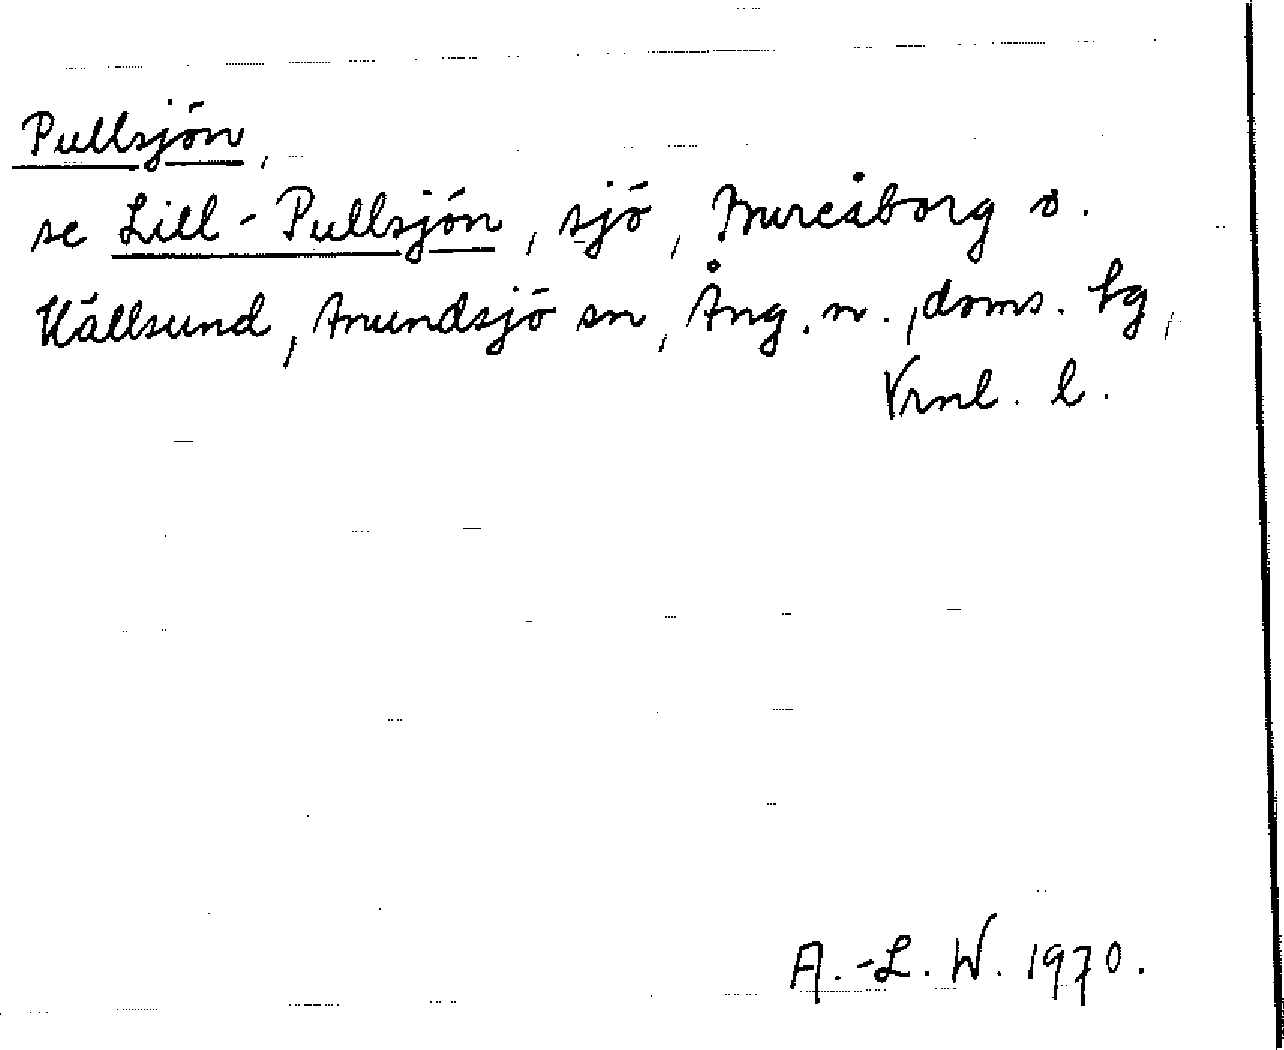 Pullsjön,
se Lill-Pullsjön, sjö, Bureåborg o.
Källsund, Anundsjö sn, Ång. n., doms. bg,
Vrnl. l.
A.-L. W. 1970.